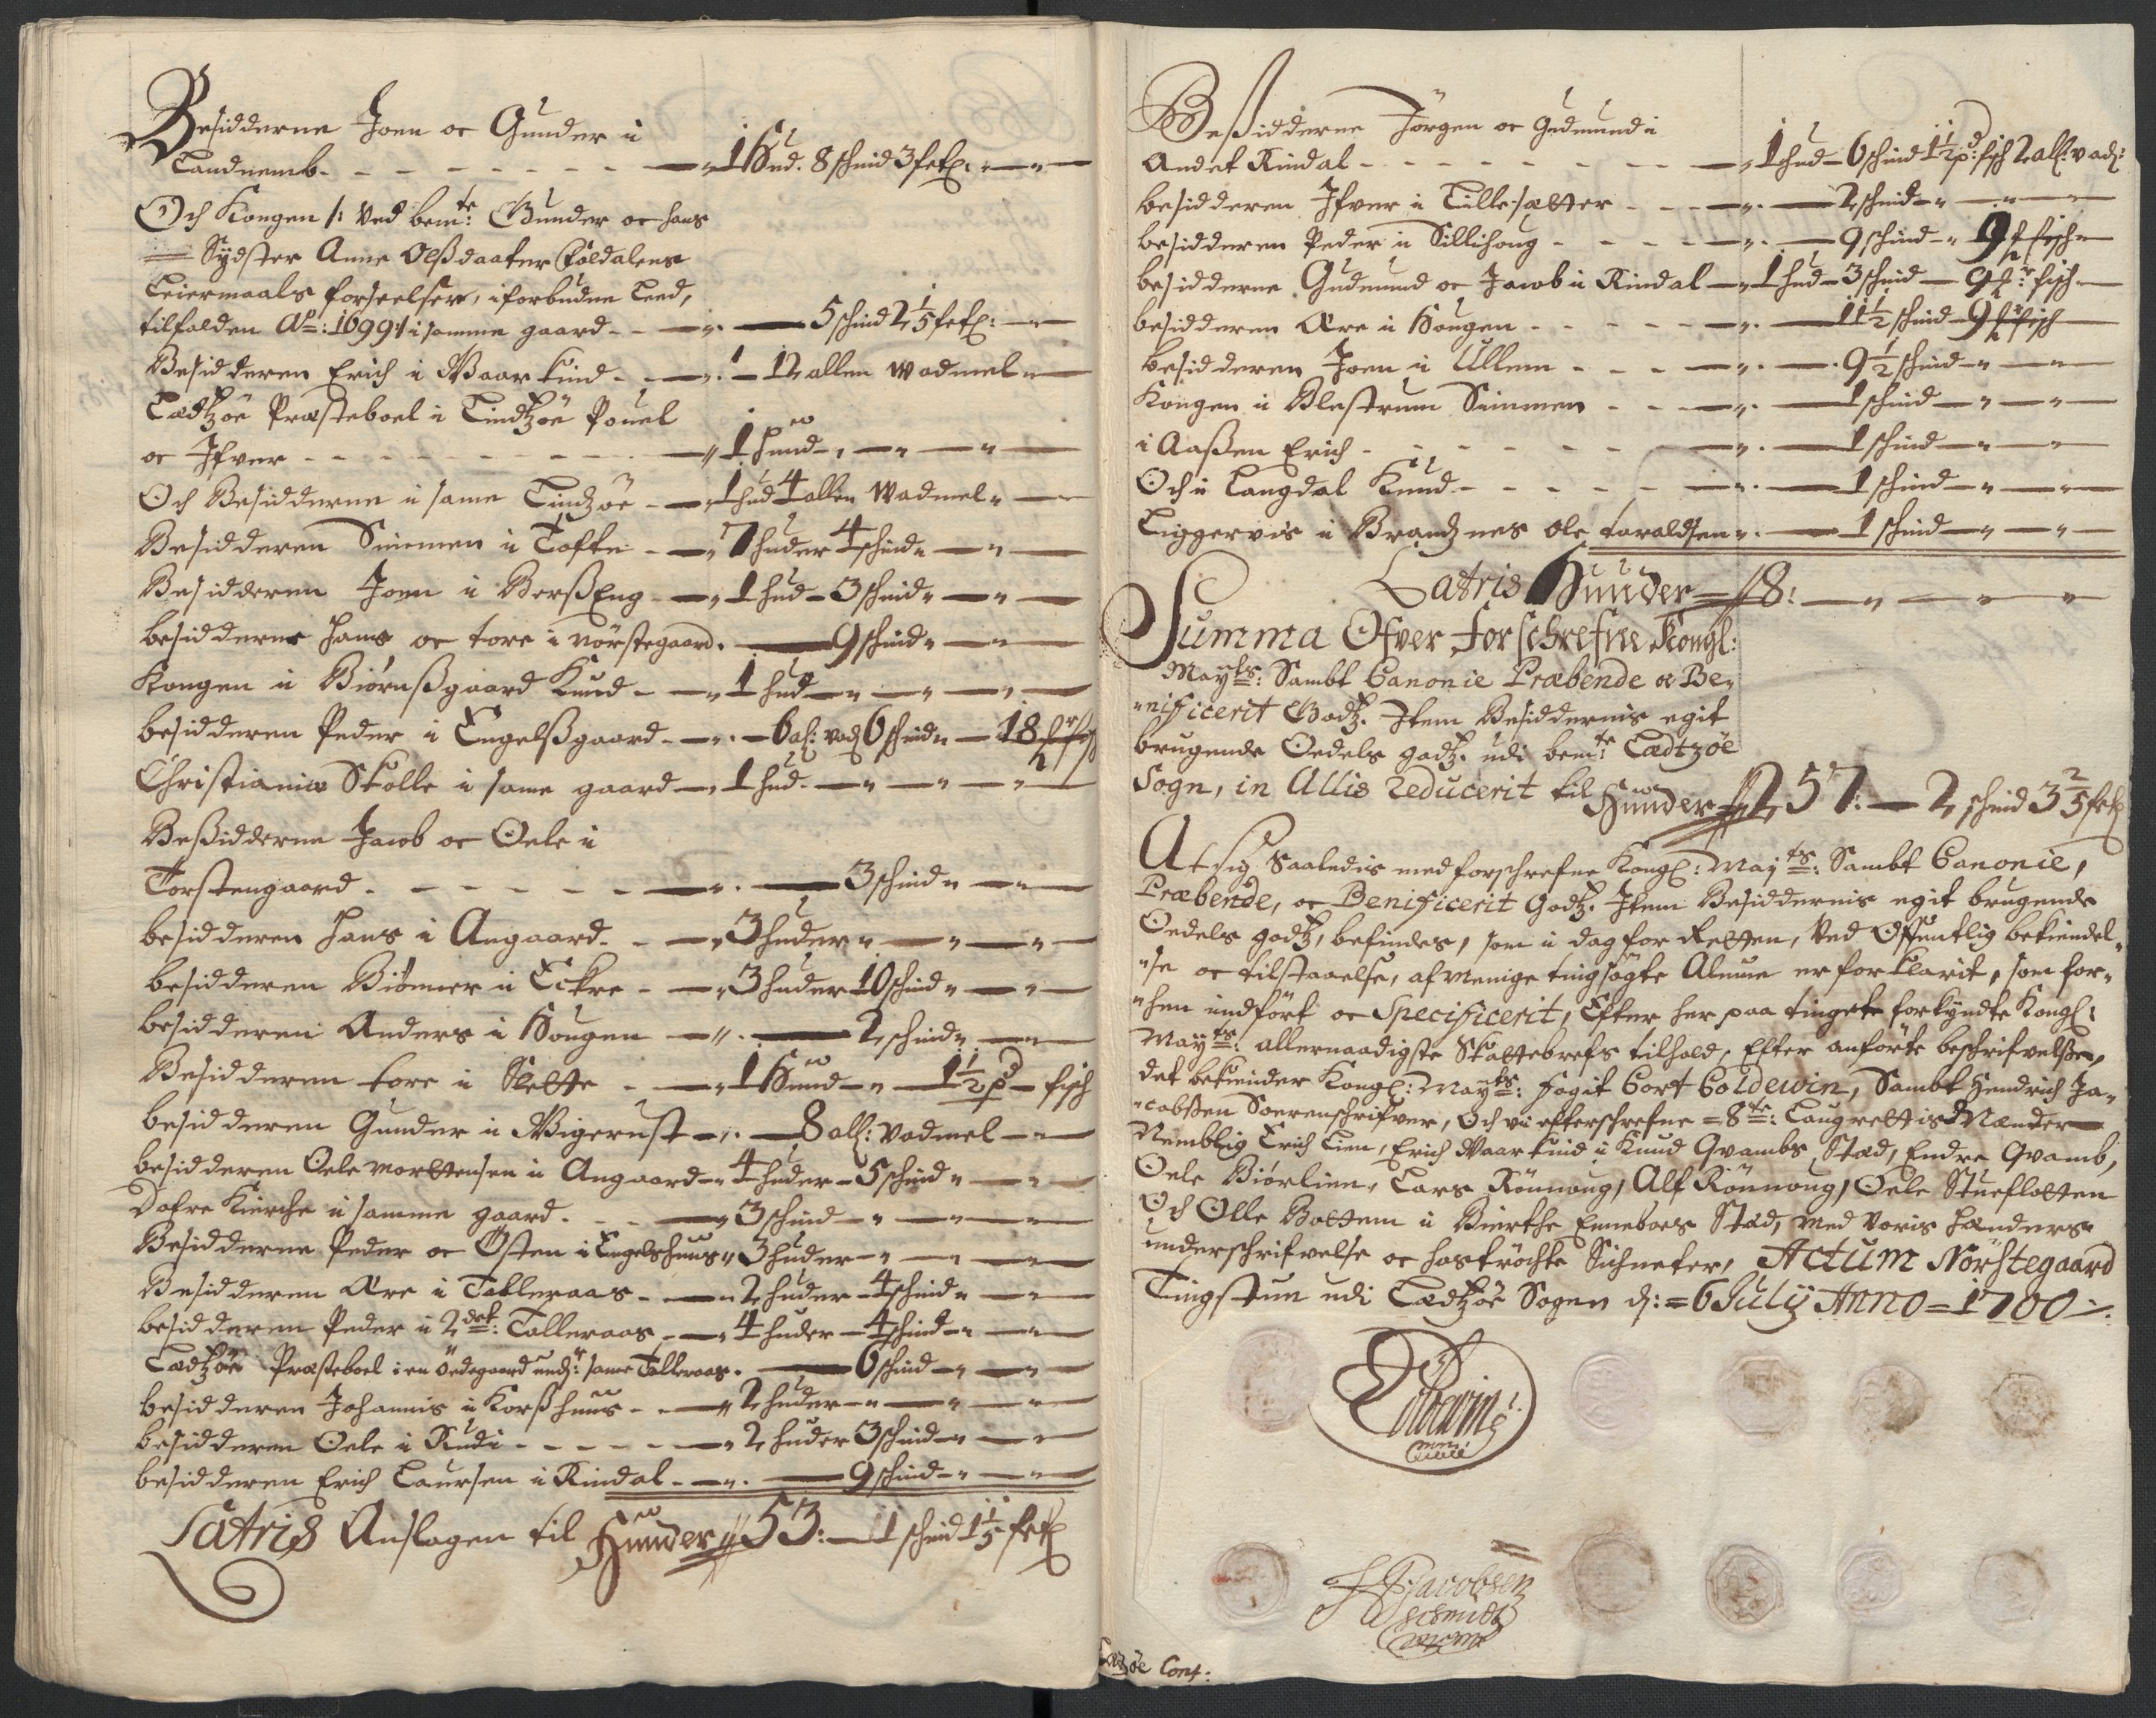 Besidderne Joen oc Gunder i
Landnemb - - - - - - - 1 Hud. 8 schind 3 fetl:
Och Kongen /: Ved bemte: Gunder oc hans
Sydster Anne Olßdaater Foldalens
Leiermaals forseelser, i forbudne Leed,
tilfalden Ao: 1699 :/ i samme gaard - - 5 schind 2 1/5 fetl:
Besidderen Erich i Waarkind - - 12 allen Wadmel
Lædtzöe Præsteboel i Lindtzöe Pouel
oc Ifver - - - - - - 1 hund
Och Besidderne i same Lindzöe - 1 hud 4 allen Wadmel
Besidderen Simmen i Tofte - - 7 huder 4 schind
Besidderen Joen i BerßEng - - 1 hud - 3 schind
besidderne Hans oc tore i nörstegaard. - 9 schind
Kongen i Biörnßgaard Knud - - 1 hud
besidderen Peder i Engelßgaard - - 6 al: vad: 6 schind - 18
Christianiæ Skolle i same gaard - 1 hud
Beßidderne Jacob oc Oele i
Torstengaard - - - - - - 3 schind
besidderen Hans i Angaard - - 3 huder
besidderen Biönner i Eckre - - 3 huder 10 schind
besidderen Anders i Hougen - - 2 schind
Besidderen tore i Slette - - 1 Hund - 1 1/2 pd fisch
besidderen Gunder i Wigerust - 8 all: vadmel
besidderen Oele Mortensen i Angaard - 4 huder - 5 schind
Dofre Kierche i samme gaard - - 3 schind
Besidderne Peder oc Östen i Engelshuus 3 huder
Besidderen Are i Tolleraas - - 2 huder - 4 schind
besidderen Peder i 2det: Tolleraas - 4 huder - 4 schind
Lædtzöe Præsteboel i en ödegaard undr: same Tolleraas. - 6 schind
besidderen Johannis i Korßhuus - - 2 huder
besidderen Oele i Rudi - - - - 2 huder 3 schind
besidderen Erich Laursen i Rindal - - 9 schind
Latris Anslagen til Hunder 53: - 11 schind 1 1/5 fetl
Beßidderne Jörgen oc Gudmund i
Andet Rindal - - - - - - 1 hud - 6 schind 1 1/2 pd: fisch 2 all: vad:
besidderen Ifver i Tullesætter - - 2 schind
besidderen Peder i Sillihoug - - - 9 schind - 9 fisch
besidderne Gudmund oc Jacob i Rindal - 1 hud - 3 schind - 9 fisch
besidderen Are i Hougen - - - 11 1/2 schind - 9 fisch
besidderen Joen i Ullem - - - 9 1/2 schind
Kongen i Blestrum Simmen - - 1 schind
i Aaßen Erich - - - - - 1 schind
Och i Langdal Knud - - - - 1 schind
Liggervis i Brandznes ole taraldsen - 1 schind
Latris Hunder 18:
Summa Ofver forschrefne Kongl:
Mayts: Sambt Canonie Præbende oc Be-
nificerit Godtz. Item Besiddernis egit
brugende Oedels godtz. udi bemte: Lædtzöe
Sogn, in Allis Reducerit til Hunder 257: - 2 schind 3 2/5 fetl
At sig Saaledis med forschrefne Kongl: Mayts: Sambt Canonie,
Præbende, oc Benificerit Godtz. Item Besiddernis egit brugende
Oedels godtz, befindes, som i dag for Retten, Ved Offentlig bekiendel-
se oc tilstaaelse, af menige tingsögte Almue er forklarit, som for-
hen indfört oc Specificerit, Efter her paa tingete forkyndte Kongl:
Mayts: allernaadigste Skattebrefs tilhold, Efter anförte beschrifvelßer,
det bekiender Kongl: Mayts: Fogit Cort Coldewin, Sambt Hendrich Ja-
cobßen Soerenschrifver, Och vi efterschrefne = 8te: Laugrettis Mænder
Nemblig Erich Lien, Erich Waarkind i Knud Qvambs Stæd, Endre Qvamb,
Oele Biörlien, Lars Rönnoug, Alf Rönnoug, Oele Stueflotten
Och Olle Bottem i Bierthe Enneboes Stæd, med Voris Hænders
underschrifvelse oc hoströchte Sichneter, Actum Nörstegaard
Tingstue udi Lædtzöe Sogen d: = 6 July Anno = 1700
Coldewin
HJacobsen
Schmidt
Lædzöe Cont: